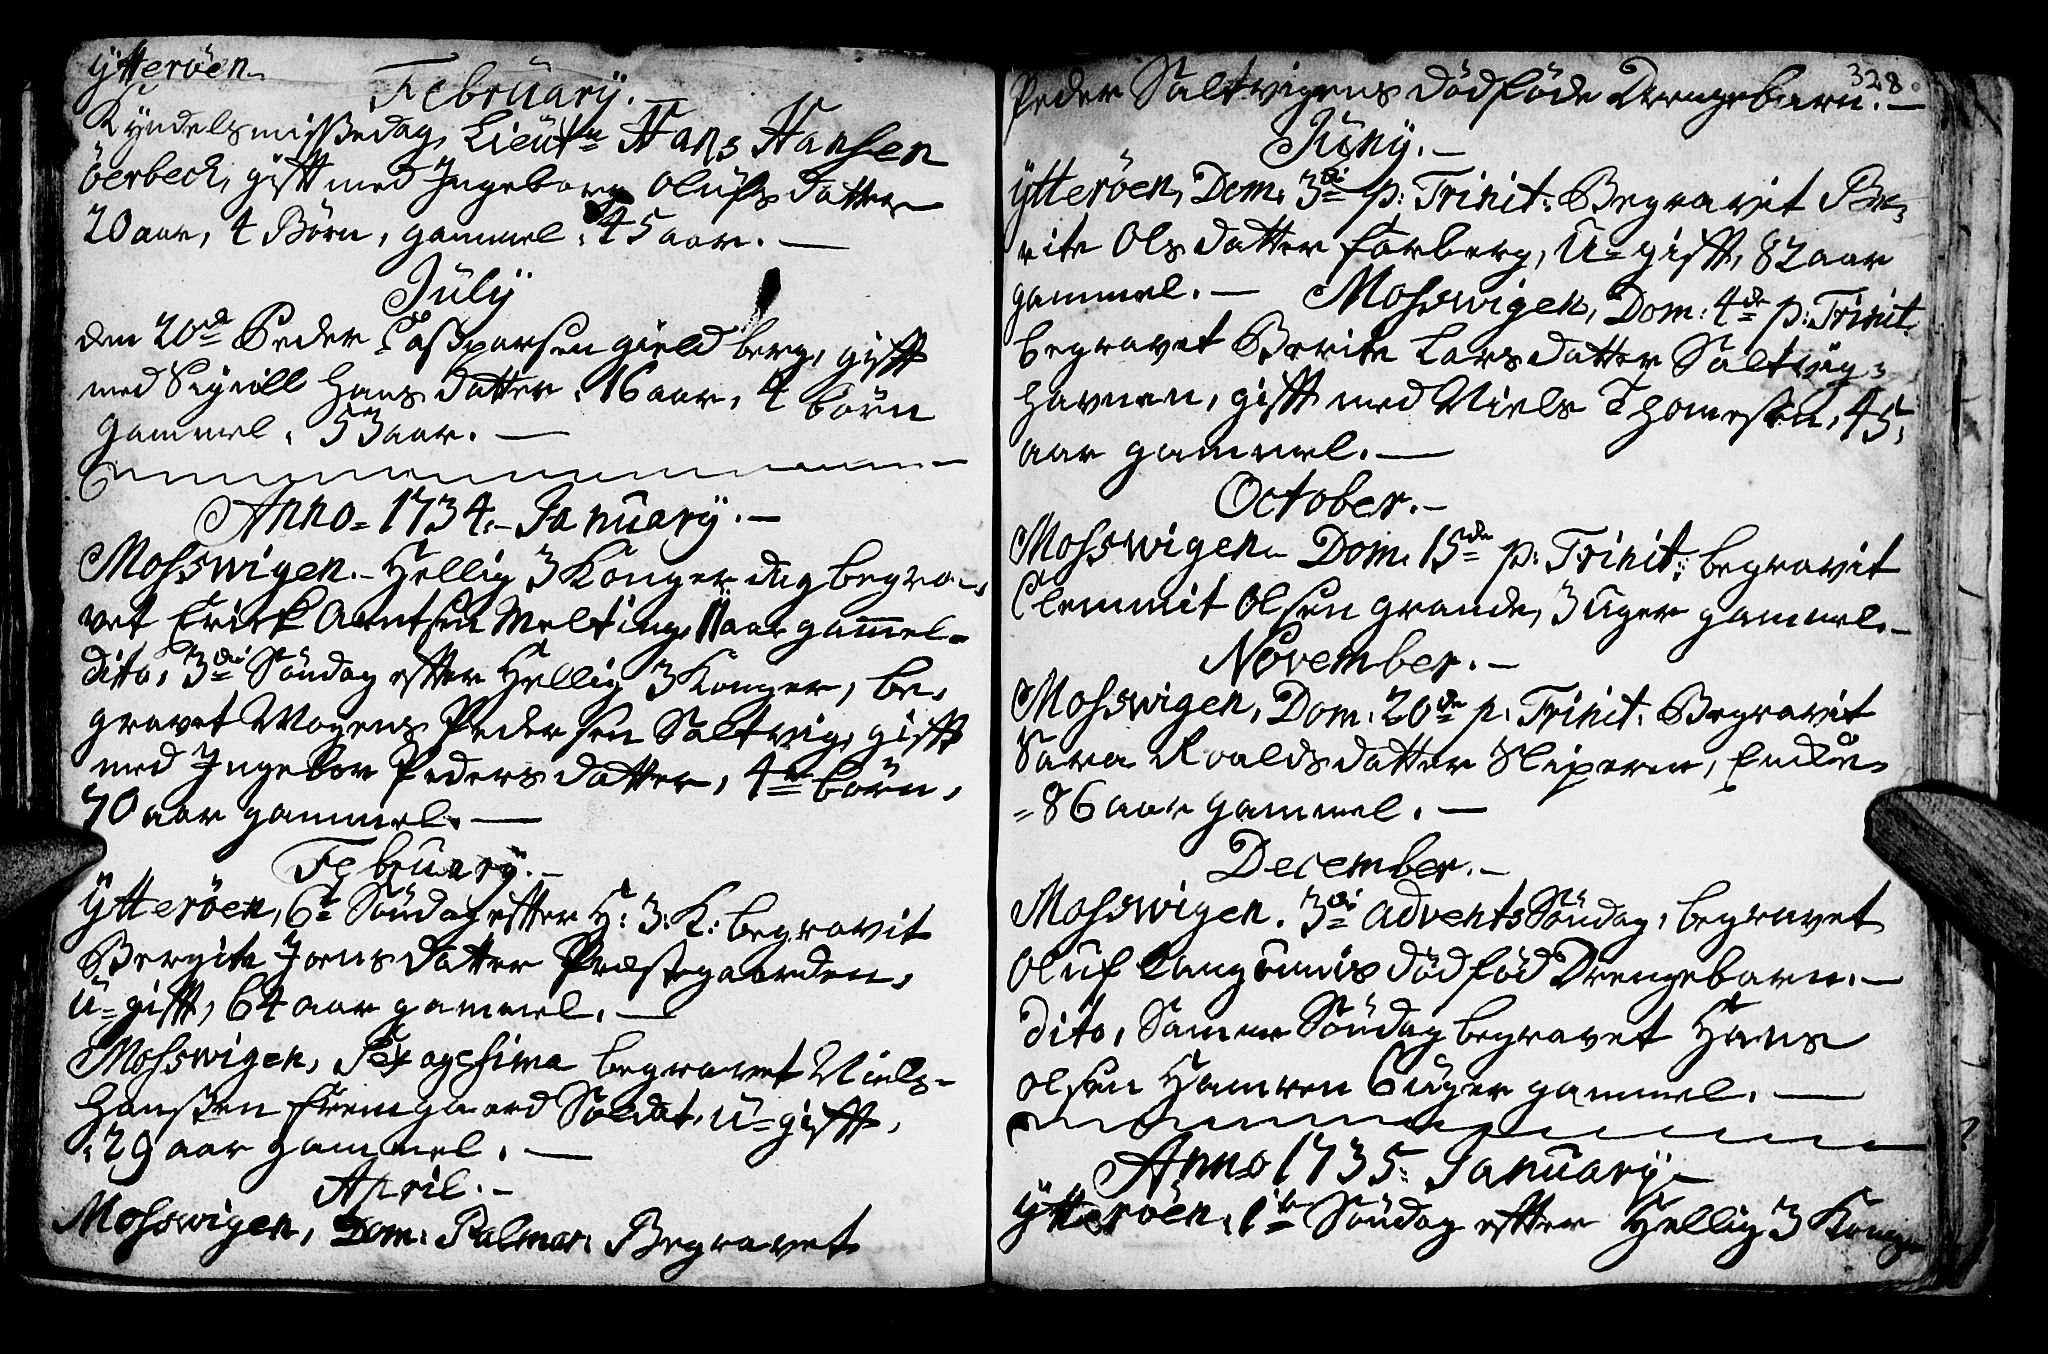 Ytterøen
February. —
Kyndelsmissedag, Lieutn Hans Hansen
Öerbeck, gifft med Ingeborg Olüfsdatter
20 aar, 4 Børn, gammel: 45 aar. —
Jüly
den 20de Peder Casspersen gieldberg, gifft
med Sigrill Hansdatter, 16 aar, 4 børn
gammel, 53 aar. —
Anno = 1734. – January. —
Mossvigen. – Hellig 3 Konger dag begra-
vet Erick Arntsen Melting, 11 aar gam̅el.
Dito, 3die Söndag effter Hellig 3 Konger, be-
gravet Mogens Pedersen Saltvig, gifft
med Ingebor Pedersdatter, 4re börn,
70 aar gammel. —
February. —
Ytterøen, 6te Söndag effter H: 3: K: begravit
Bergite Joensdatter Præstegaarden,
ü=gifft, 64 aar gammel. —
Mossvigen, Sexagesima begravet Niels
Hanssen Fremgaard Soldat, ü=gifft,
29 aar gammel. —
April. —
Mossvigen, Dom: Palmar: Begravet
328
Peder Saltvigens dödföde Drengebarn. —
Jüny. —
Ytterøen, Dom: 3die p: Trinit: Begravit Be-
rite Olsdatter Forberg, Ü=gifft, 82 aar
gammel. — Mossvigen, Dom: 4de p: Trinit.
begravet Berite Larsdatter Saltvig-
havnen, gifft med Niels Thomesen, 45,
aar gammel. —
October. —
Mossvigen – Dom. 15de p: Trinit: begravit
Clemmit Olsen grande, 3 üger gammel. —
November. —
Mossvigen, Dom: 20de p: Trinit: Begravit
Sara Roaldsdatter Sliperen, Encke,
=86 aar gammel. —
December. —
Mossvigen. 3die Advents Söndag, begravet
Oluf dödföd Drengebarn. —
Dito, Samme Söndag begravet Hans
Olsen Hamren 6 üger gammel. —
Anno 1735: January –
Ytterøen, 1te Söndag effter Hellig 3 Konger